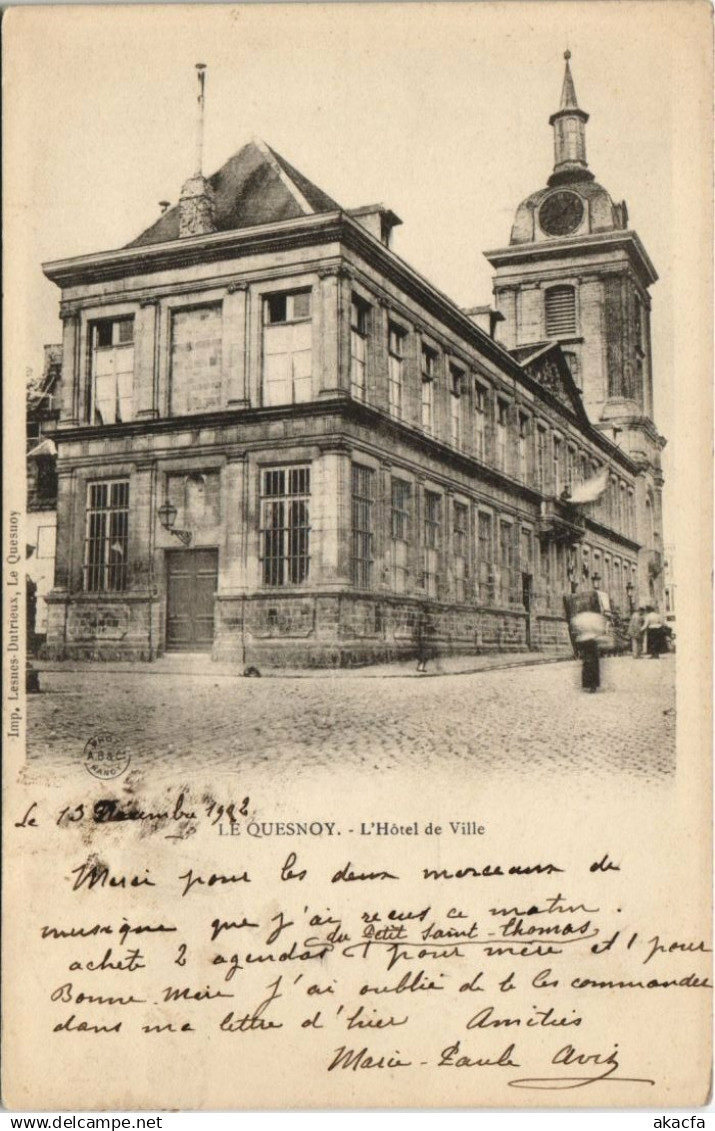 Imp. Lesnes-Dutrieux, Le Quesnoy
PHOT.
A.B.&Cie
NANCY
LE QUESNOY. - L'Hôtel de Ville
Le 13 Décembre 1902
Merci pour les deux morceaux de
musique que j'ai reçus ce matin.
du Petit Saint-Thomas
achete 2 agendas 1 pour mère et 1 pour
Bonne-Mère j'ai oublié de te les commander
dans ma lettre d'hier Amitiés
Marie-Paule
akacfa
www.delcampe.net